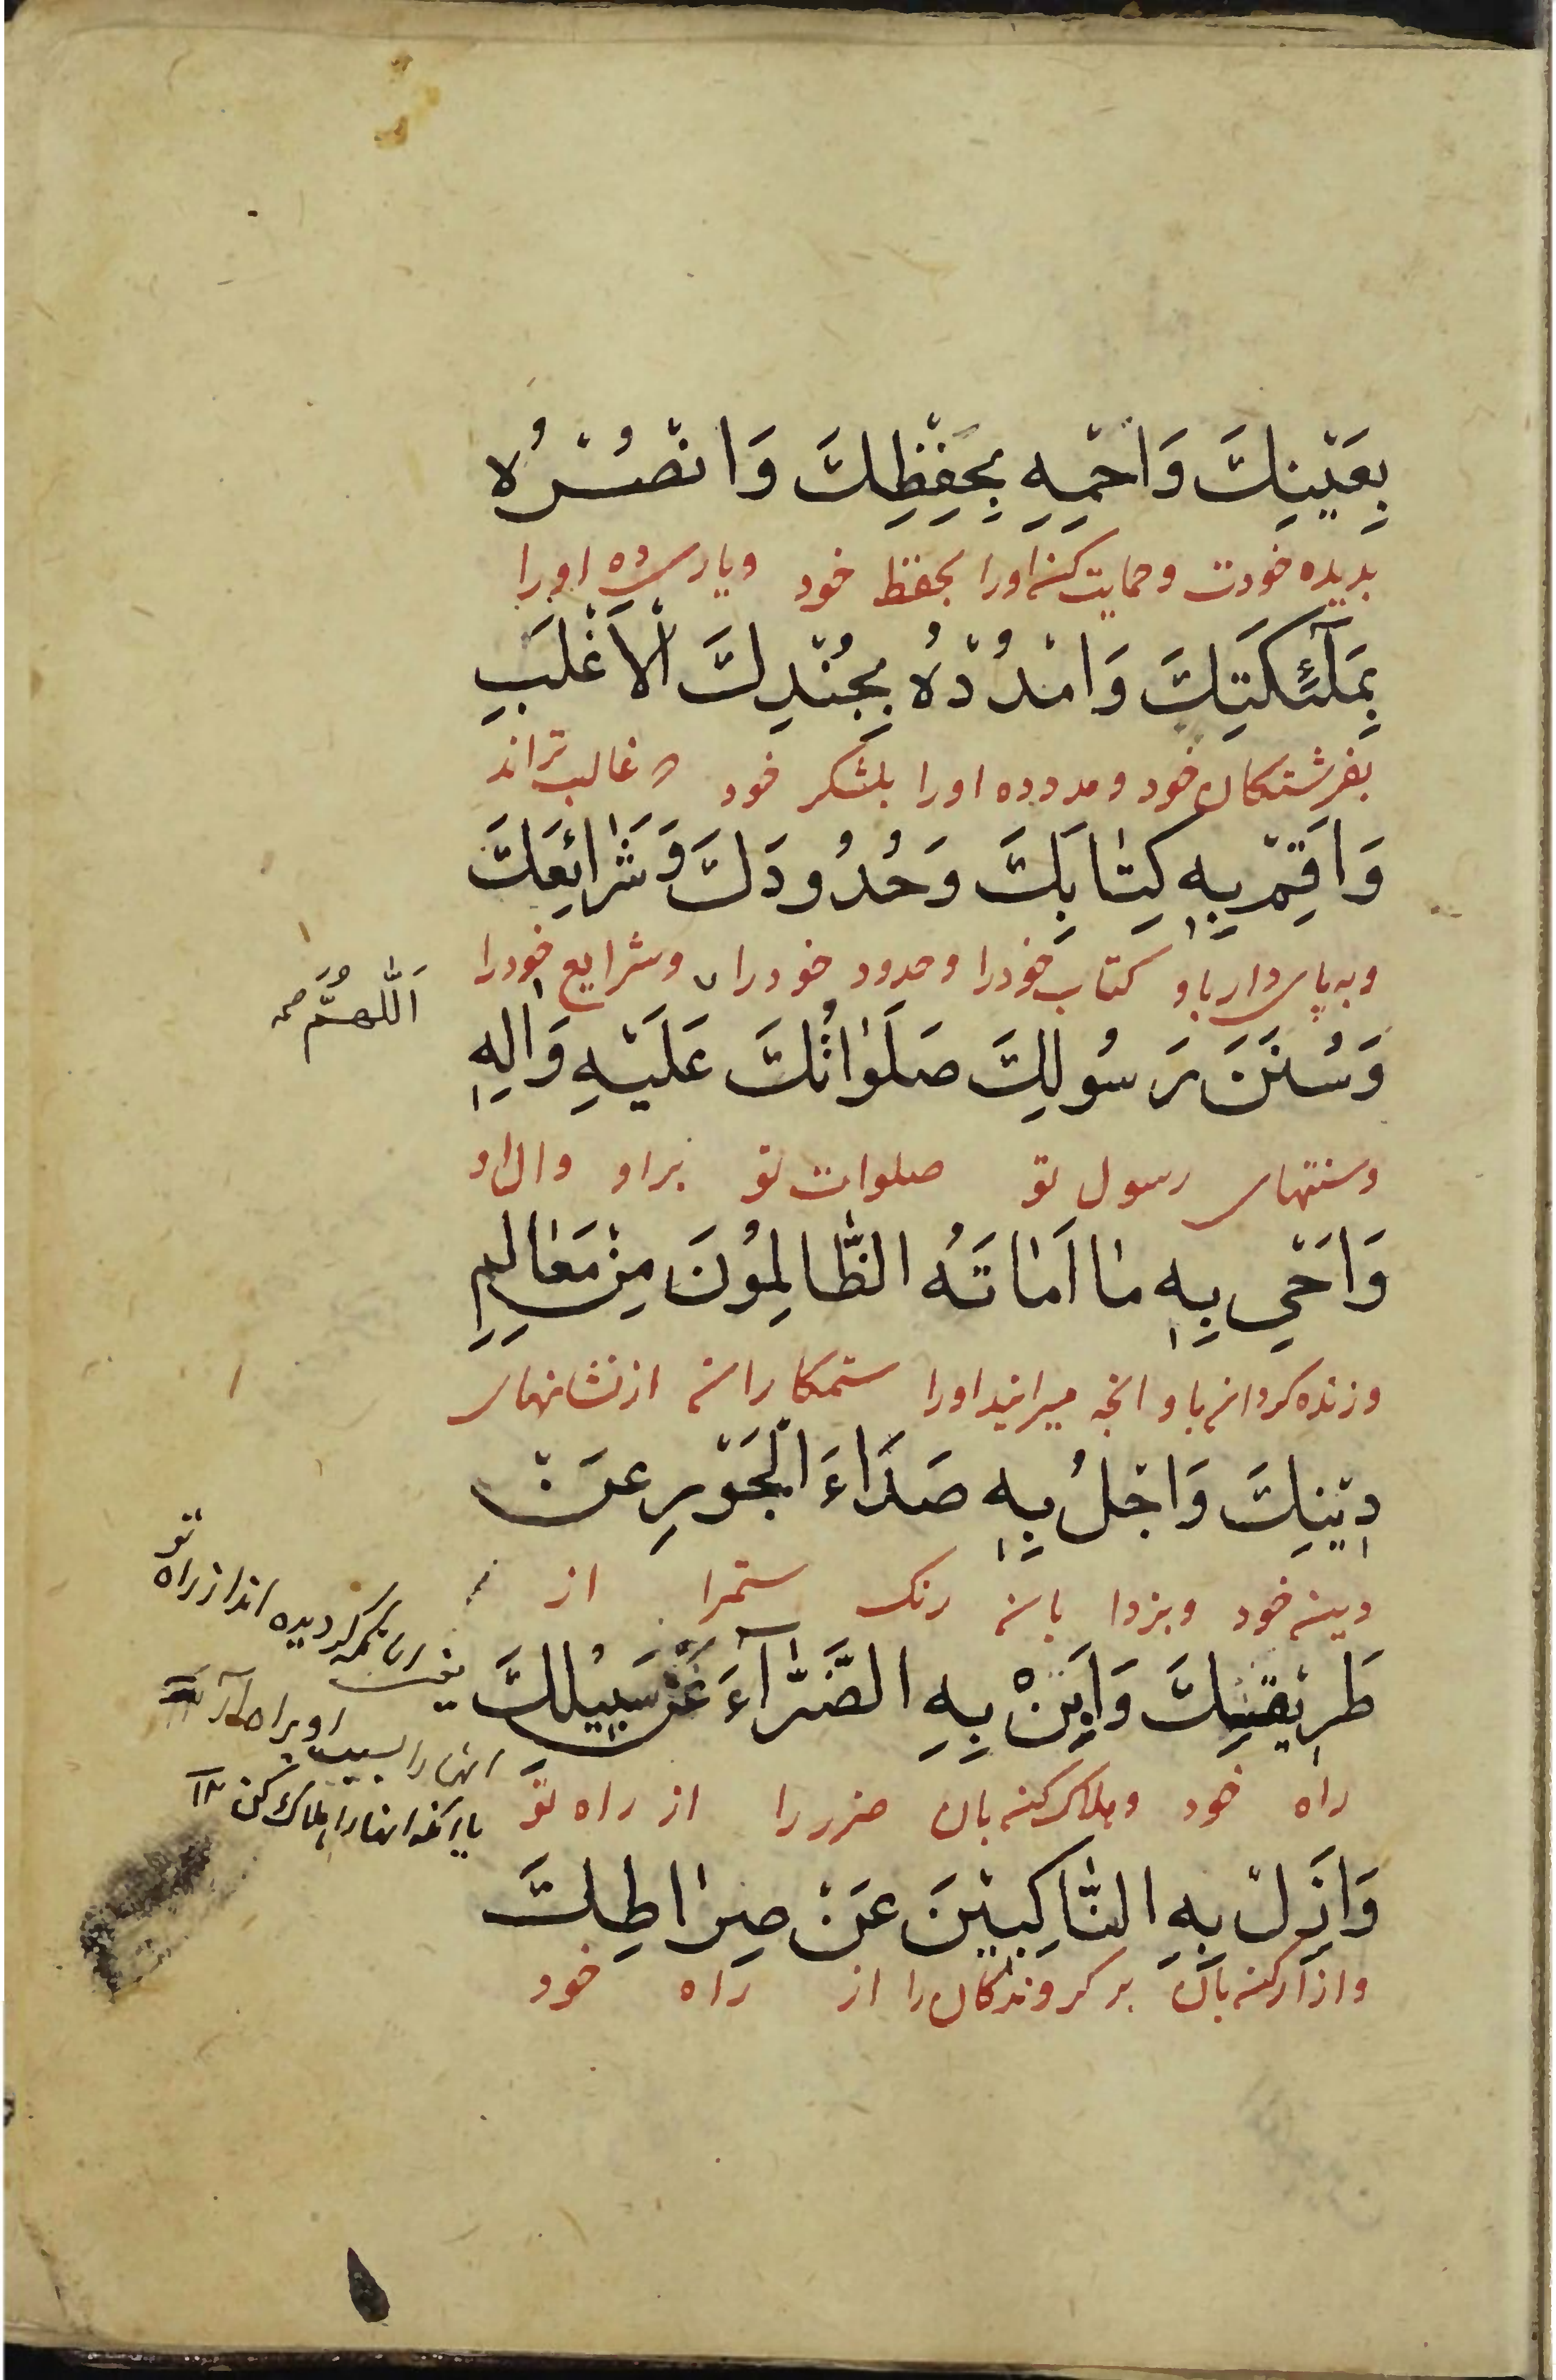 بِعَيْنِكَ وَاحْمِهِ بِحِفْظِكَ وَانْصُرْهُ
بدیده خودت و حمایت کن اورا بحفظ خود ویاری ده اورا
بِمَلٰٓئِكَتِكَ وَامْدُدْهُ بِجُنْدِكَ الْاَغْلَبِ
بفرشتکان خود و مدد ده اورا بلشکر خود که غالب تراند
وَاَقِمْ بِهٖ كِتٰابَكَ وَحُدُودَكَ وَشَرٰائِعَكَ
وبه پای دار باو کتاب خودرا وحدود خودرا وشرایع خودرا
اَللّٰهُمَّ
وَسُنَنَ رَسُولِكَ صَلَوٰاتُكَ عَلَيْهِ وَاٰلِهٖ
وسنتهای رسول تو صلوات تو براو وال او
وَاَحْيِ بِهٖ مٰا اَمٰاتَهُ الظّٰالِمُونَ مِنْ مَعٰالِمِ
وزنده کردان باو انچه میرانید اورا ستمکاران از نشانهای
دٖيْنِكَ وَاجْلُ بِهٖ صَدَاءَ الْجَوْرِ عَنْ
دین خود وبزدا بان رنک ستمرا از
طَرٖيْقَتِكَ وَاَبِنْ بِهِ الضَّرّٰٓاءَ عَنْ سَبِيْلِكَ
راه خود وهلاک کن بان ضرر را از راه تو
یعنی انانکه کردیده انداز راه تو
انها را بسبب او براه آر
یا انکه انها را هلاک کن ۱۲
وَاَزِلْ بِهِ النّٰاكِبِيْنَ عَنْ صِرٰاطِكَ
وازار کن بان بر کروندکان را از راه خود